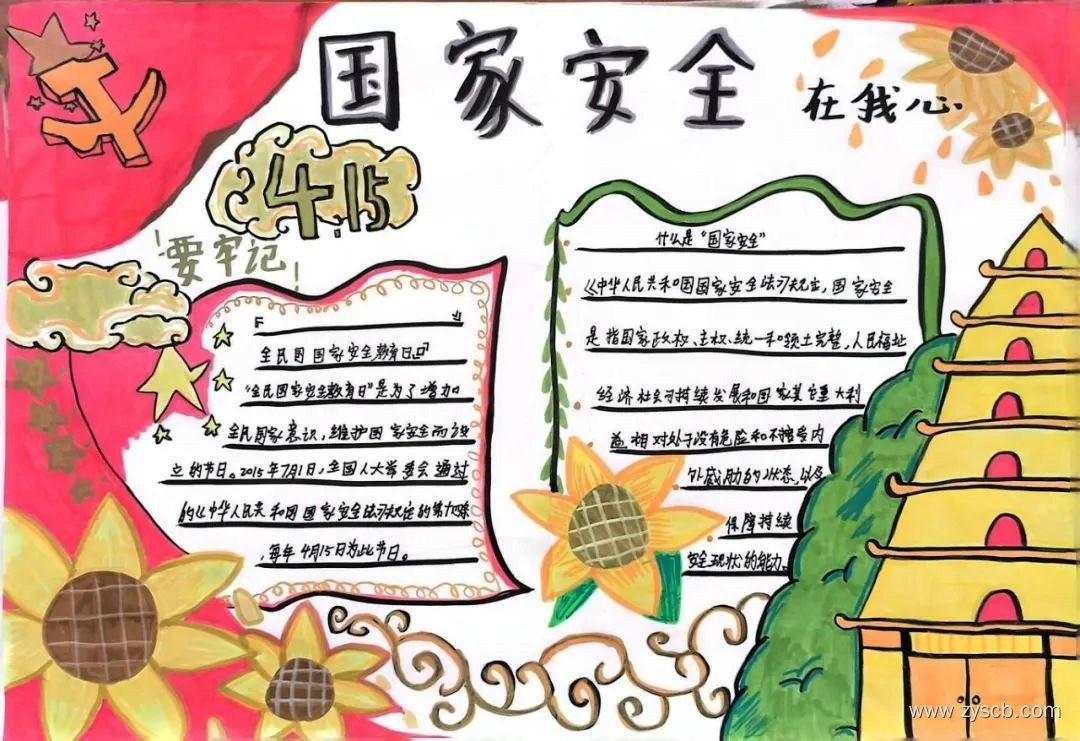 国家安全
在我心
4.15
要牢记
全民国国家安全教育日
"全民国家安全教育日"是为了增加
全民国家意识，维护国家安全而设
立的节日。2015年7月1日，全国人大常委会通过
的《中华人民共和国国家安全法》规定的第
，每年4月15日为此节日。
什么是"国家安全"
《中华人民共和国国家安全法》规定，国家安全
是指国家政权、主权、统一和领土完整，人民福址
经济社会可持续发展和国家其它重大利
益相对处于没有危险和不受内
外威胁的状态，以及
保障持续
安全现状的能力。
www.zyscb.com